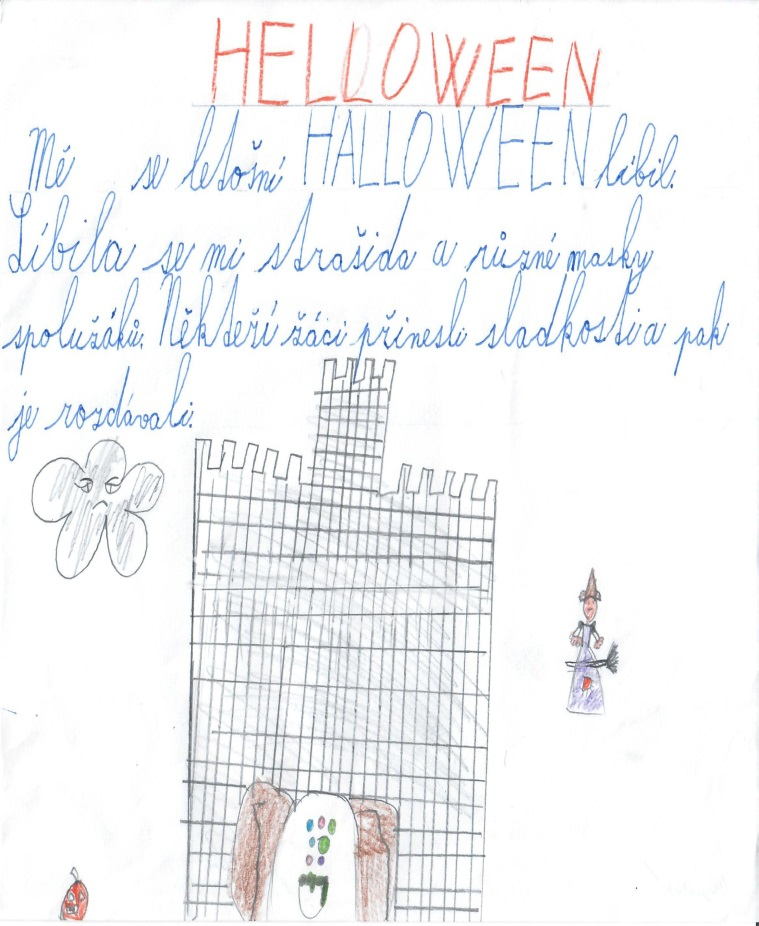 HELLOWEEN
Mě se letošní HALLOWEEN líbil.
Líbila se mi strašida a různé masky
spolužáků. Někteří žáci přinesli sladkosti a pak
je rozdávali.